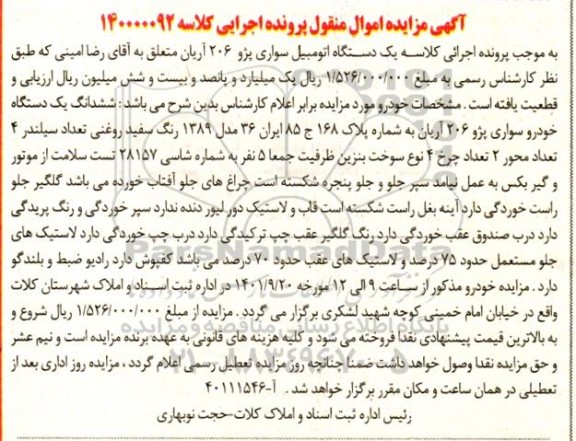 آگهی مزایده اموال منقول پرونده اجرایی کلاسه ۱۴۰۰۰۰۰۹۲
به موجب پرونده اجرائی کلاسه یک دستگاه اتومبیل سواری پژو ۲۰۶ آریان متعلق به آقای رضا امینی که طبق
نظر کارشناس رسمی به مبلغ ۱/۵۲۶/۰۰۰/۰۰۰ ریال یک میلیارد و پانصد و بیست و شش میلیون ریال ارزیابی و
قطعیت یافته است . مشخصات خودرو مورد مزایده برابر اعلام کارشناس بدین شرح می باشد : ششدانگ یک دستگاه
خودرو سواری پژو ۲۰۶ آریان به شماره پلاک ۱۶۸ ج ۸۵ ایران ۳۶ مدل ۱۳۸۹ رنگ سفید روغنی تعداد سیلندر ۴
تعداد محور ۲ تعداد چرخ ۴ نوع سوخت بنزین ظرفیت جمعا ۵ نفر به شماره شاسی ۲۸۱۵۷ تست سلامت از موتور
و گیر بکس به عمل نیامد سپر جلو و جلو پنجره شکسته است چراغ های جلو آفتاب خورده می باشد گلگیر جلو
راست خوردگی دارد آینه بغل راست شکسته است قاب و لاستیک دور لیور دنده ندارد سپر خوردگی و رنگ پریدگی
دارد درب صندوق عقب خوردگی دارد رنگ گلگیر عقب چپ ترکیدگی دارد درب چپ خوردگی دارد لاستیک های
جلو مستعمل حدود ۷۵ درصد و لاستیک های عقب حدود ۷۰ درصد می باشد کفپوش دارد رادیو ضبط و بلندگو
دارد . مزایده خودرو مذکور از ساعت ۹ الی ۱۲ مورخه ۱۴۰۱/۹/۲۰ در اداره ثبت اسناد و املاک شهرستان کلات
واقع در خیابان امام خمینی کوچه شهید لشکری برگزار می گردد . مزایده از مبلغ ۱/۵۲۶/۰۰۰/۰۰۰ ریال شروع و
به بالاترین قیمت پیشنهادی نقدا فروخته می شود و کلیه هزینه های قانونی به عهده برنده مزایده است و نیم عشر
و حق مزایده نقدا وصول خواهد داشت ضمنا چنانچه روز مزایده تعطیل رسمی اعلام گردد ، مزایده روز اداری بعد از
تعطیلی در همان ساعت و مکان مقرر برگزار خواهد شد . آ-۴۰۱۱۱۵۴۶
رئیس اداره ثبت اسناد و املاک کلات-حجت نوبهاری